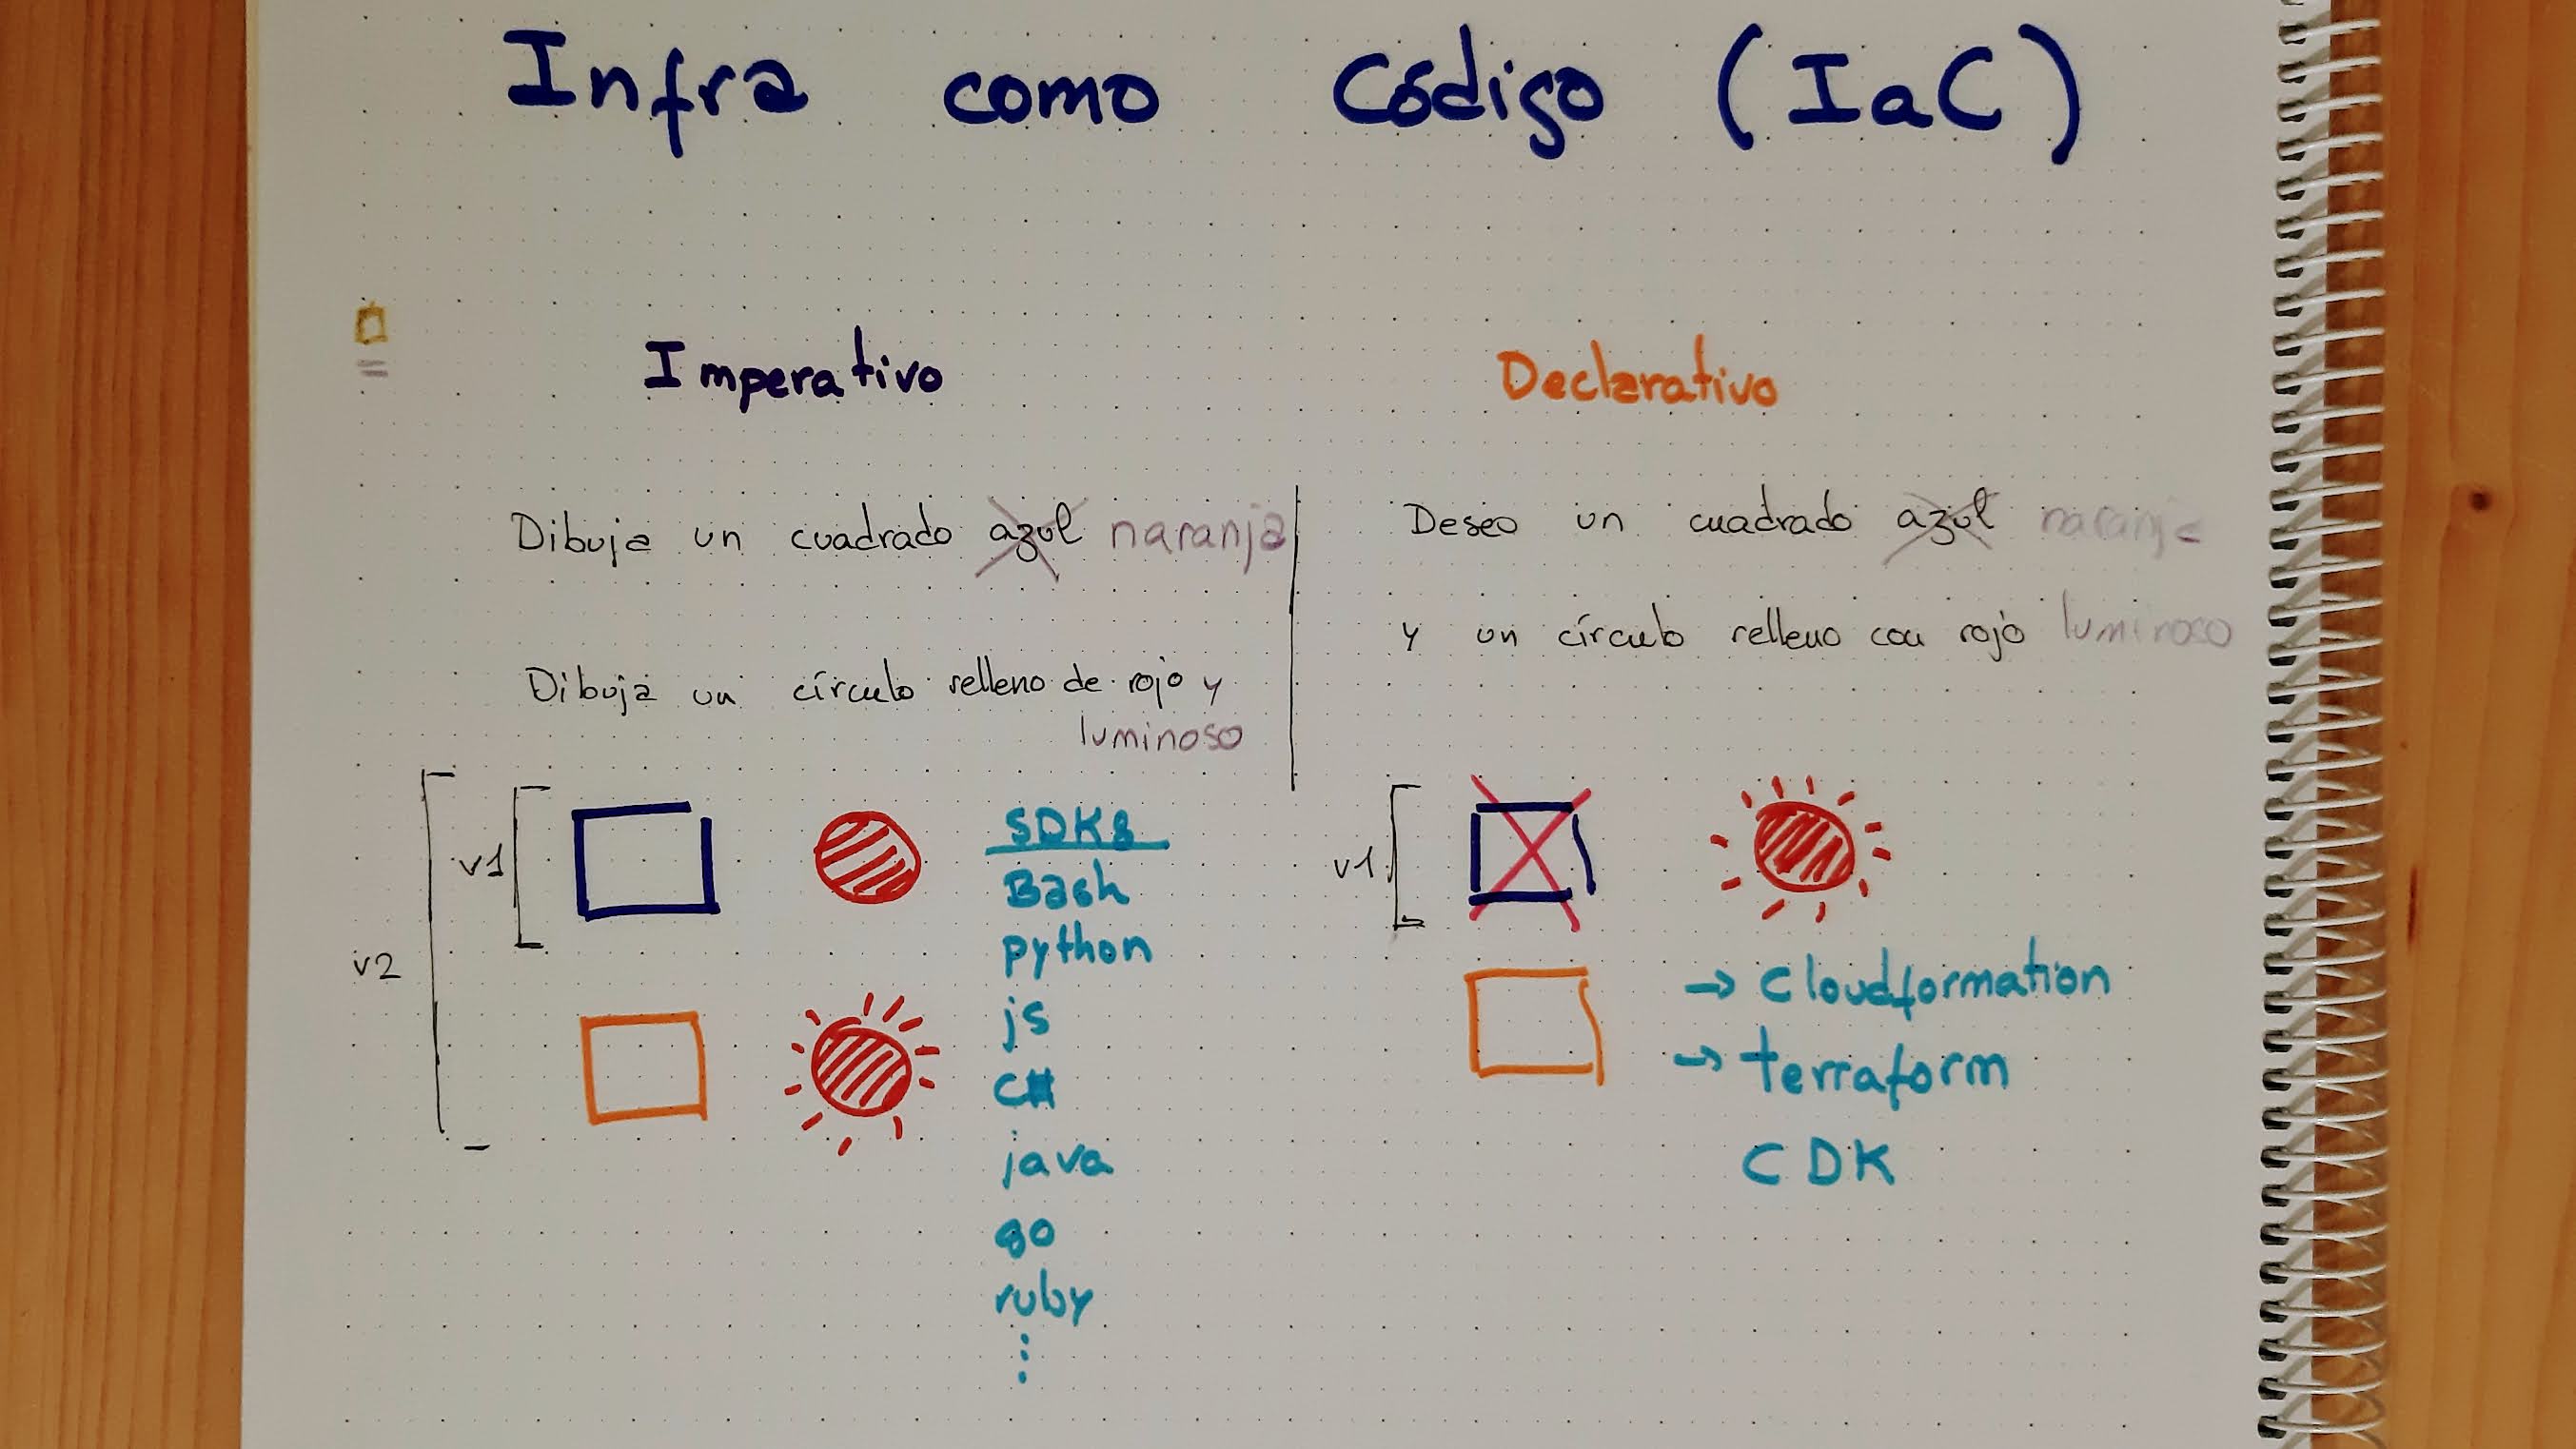 Infra como Código (IaC)
Imperativo
Dibuja un cuadrado azul naranja
Dibuja un círculo relleno de rojo y
luminoso
v1
v2
SDKs
Bash
python
js
C#
java
go
ruby
⋮
Declarativo
Deseo un cuadrado azul naranja
y un círculo relleno con rojo luminoso
v1
→ Cloudformation
→ terraform
CDK